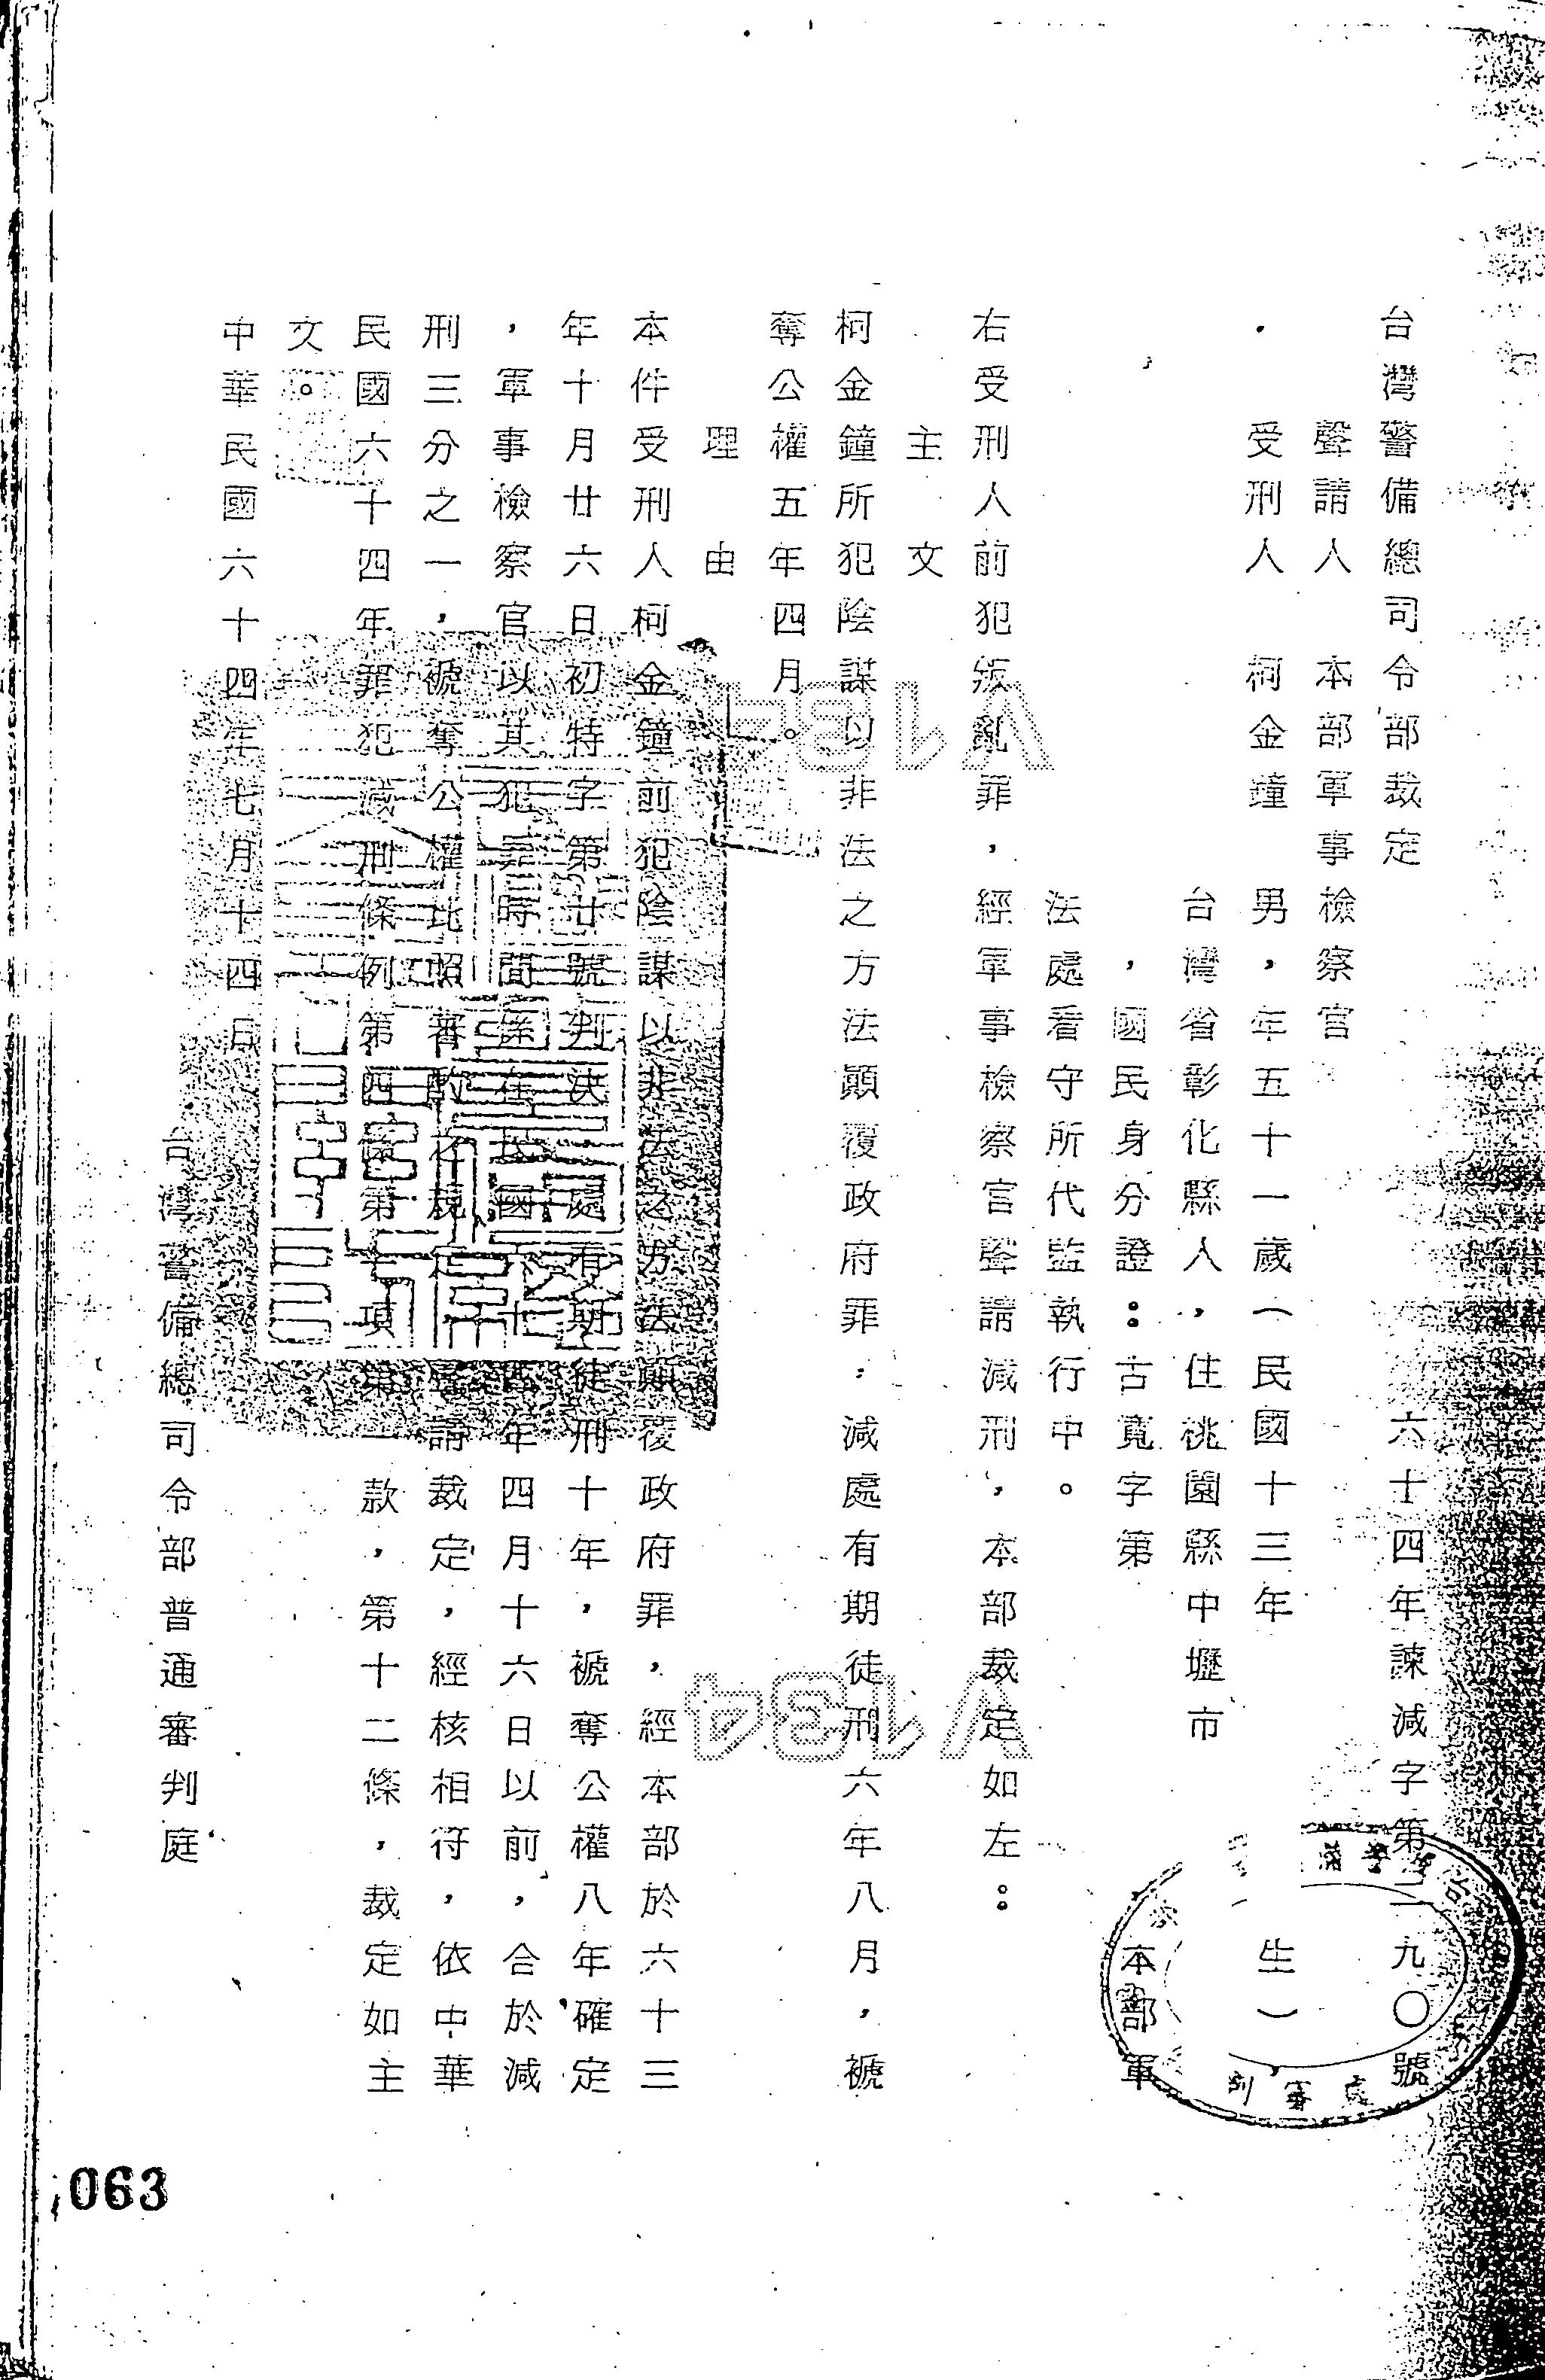 台灣警備總司令部裁定　六十四年諫減字第二九〇號
聲請人　本部軍事檢察官
受刑人　柯金鐘　男，年五十一歲（民國十三年　生），
台灣省彰化縣人，住桃園縣中壢市
，國民身分證：古寬字第　本部軍
法處看守所代監執行中。
右受刑人前犯叛亂罪，經軍事檢察官聲請減刑，本部裁定如左：
主文
柯金鐘所犯陰謀以非法之方法顛覆政府罪，減處有期徒刑六年八月，褫
奪公權五年四月。
理由
本件受刑人柯金鐘前犯陰謀以非法之方法顛覆政府罪，經本部於六十三
年十月廿六日初特字第廿號判決，處有期徒刑十年，褫奪公權八年確定
，軍事檢察官以其犯罪時間係在民國六十四年四月十六日以前，合於減
刑三分之一，褫奪公權比照審酌之規定，聲請裁定，經核相符，依中華
民國六十四年罪犯減刑條例第四條第一項第一款，第十二條，裁定如主
文。
中華民國六十四年七月十四日
台灣警備總司令部普通審判庭
V134
V134
063